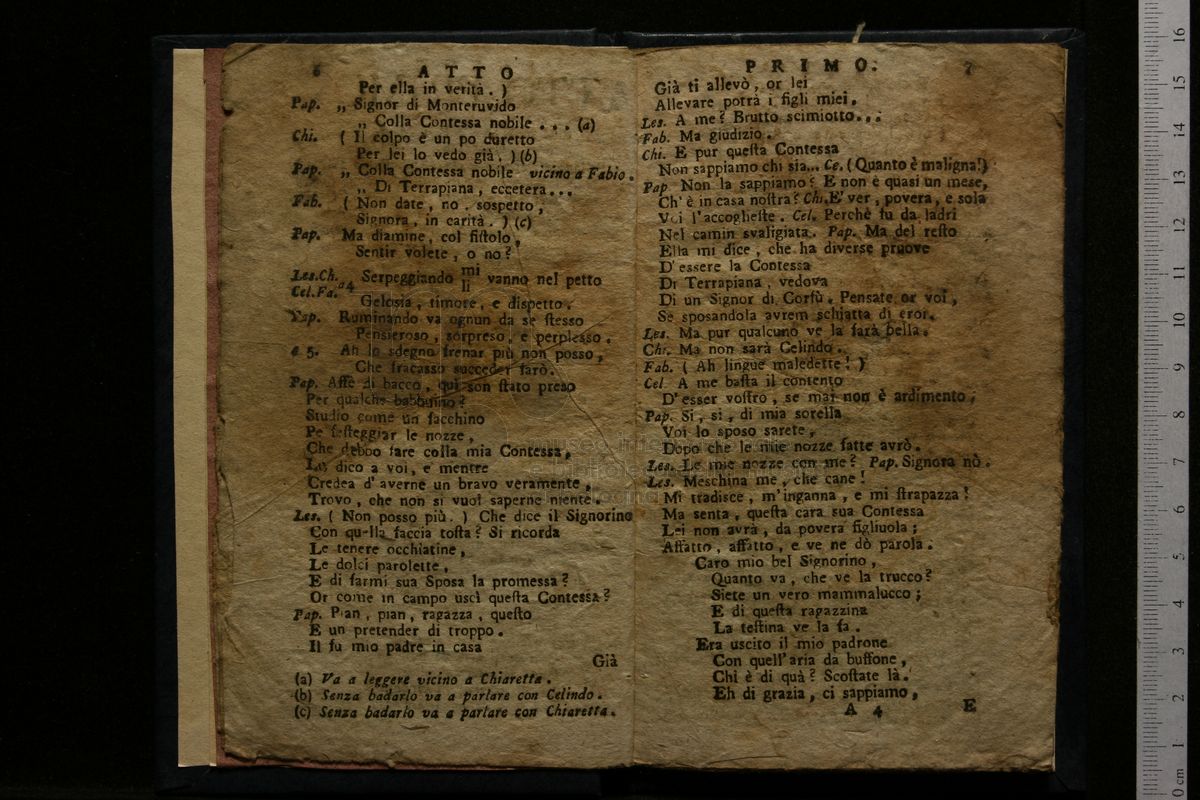 6 ATTO
Per ella in verità. )
Pap. „ Signor di Monteruvido
„ Colla Contessa nobile . . . (a)
Chi. ( Il colpo è un po duretto
Per lei lo vedo già. ) (b)
Pap. „ Colla Contessa nobile vicino a Fabio.
„ Di Terrapiana, eccetera...
Fab. ( Non date, no, sospetto,
Signora, in carità. ) (c)
Pap. Ma diamine, col fiſtolo,
Sentir volete, o no?
Les.Ch. Cel.Fa. a4 Serpeggiando mi li vanno nel petto
Geloſia, timore, e diſpetto.
Pap. Ruminando va ognun da se ſteſſo
Penſieroſo, sorpreso, e perpleſſo.
a 5. Ah lo sdegno frenar più non posso,
Che fracasso succeder farò.
Pap. Affè di bacco, qui son ſtato preso
Per qualche babbuino?
Studio come un facchino
Pe feſteggiar le nozze,
Che debbo fare colla mia Contessa,
Lo dico a voi, e mentre
Credea d'averne un bravo veramente,
Trovo, che non si vuol saperne niente.
Les. ( Non posso più. ) Che dice il Signorino
Con quella faccia toſta? Si ricorda
Le tenere occhiatine,
Le dolci parolette,
E di farmi sua Sposa la promessa?
Or come in campo uscì queſta Contessa?
Pap. Pian, pian, ragazza, queſto
E un pretender di troppo.
Il fu mio padre in casa
Già
(a) Va a leggere vicino a Chiaretta.
(b) Senza badarlo va a parlare con Celindo.
(c) Senza badarlo va a parlare con Chiaretta.
PRIMO. 7
Già ti allevò, or lei
Allevare potrà i figli miei.
Les. A me? Brutto scimiotto...
Fab. Ma giudizio.
Chi. E pur queſta Contessa
Non sappiamo chi sia... Ce. (Quanto è maligna!)
Pap. Non la sappiamo? E non è quasi un mese,
Ch'è in casa noſtra? Chi.E' ver, povera, e sola
Voi l'accoglieſte. Cel. Perchè fu da ladri
Nel camin svaligiata. Pap. Ma del reſto
Ella mi dice, che ha diverse pruove
D'essere la Contessa
Di Terrapiana, vedova
Di un Signor di Corfù. Pensate or voi,
Se sposandola avrem schiatta di eroi.
Les. Ma pur qualcuno ve la farà bella.
Chi. Ma non sarà Celindo.
Fab. ( Ah lingue maledette! )
Cel. A me baſta il contento
D'esser voſtro, se mai non è ardimento;
Pap. Si, si, di mia sorella
Voi lo sposo sarete,
Dopo che le mie nozze fatte avrò.
Les. Le mie nozze con me? Pap. Signora nò.
Les. Meschina me, che cane!
Mi tradisce, m'inganna, e mi ſtrapazza!
Ma senta, queſta cara sua Contessa
Lei non avrà, da povera figliuola;
Affatto, affatto, e ve ne dò parola.
Caro mio bel Signorino,
Quanto va, che ve la trucco?
Siete un vero mammalucco;
E di queſta ragazzina
La teſtina ve la fa.
Era uscito il mio padrone
Con quell'aria da buffone,
Chi è di quà? Scoſtate là.
Eh di grazia, ci sappiamo,
A 4 E